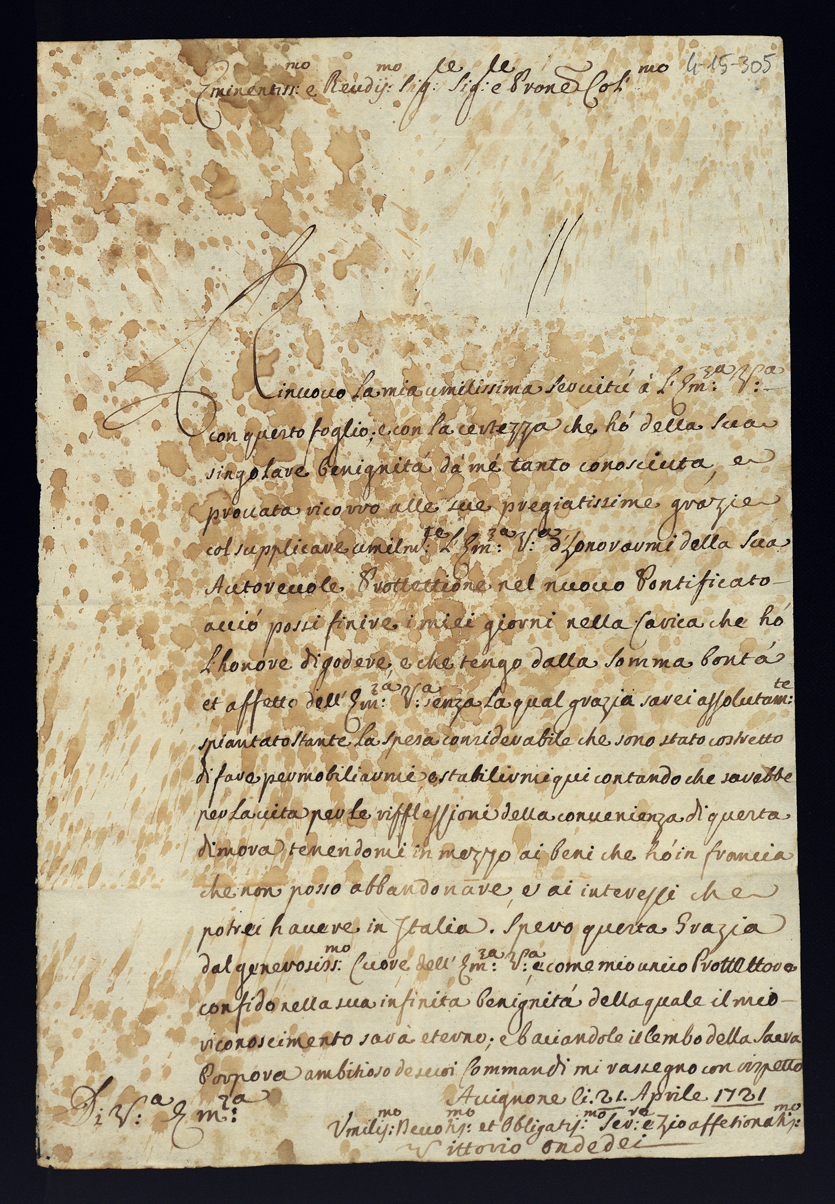 4-15-305
Eminentiss:mo e Reudis:mo Sig:re Sig:re e Prone Col:mo
Rinuouo la mia umilissima seruitú á L'Em:za V:a
con questo foglio; e con la certezza che hó della sua
singolare benignitá dá mé tanto conosciuta, e
prouata ricorro alle sue pregiatissime grazie
col supplicare umilm:te L'Em:za V:a d'honorarmi della sua
Autoreuole Prottettione nel nuouo Pontificato
acció possi finire i miei giorni nella Carica che hó
L'honore di godere, e che tengo dalla somma bontá
et affetto dell'Em:za V:a senza la qual grazia sarei assolutam:te
spiantato stante la spesa considerabile che sono stato costretto
di fare per mobiliarmi e stabilirmi qui contando che sarebbe
per la uita per le rifflessioni della conuenienza di questa
dimora tenendomi in mezzo ai beni che hó in francia
che non posso abbandonare, e ai interessi che
potrei hauere in Italia. Spero questa Grazia
dal generosiss:mo Cuore dell'Em:za V:a e come mio unico Prottettore
confido nella sua infinita benignitá della quale il mio
riconoscimento sará eterno; e baciandole il lembo della Sacra
Porpora ambitioso de suoi Commandi mi rassegno con rispetto
Di V:a Em:za
Auignone li 21. Aprile 1721
Vmilis:mo Deuotis:mo et Obligatis:mo Ser:re e Zio affetionatis:mo
Vittorio Ondedei